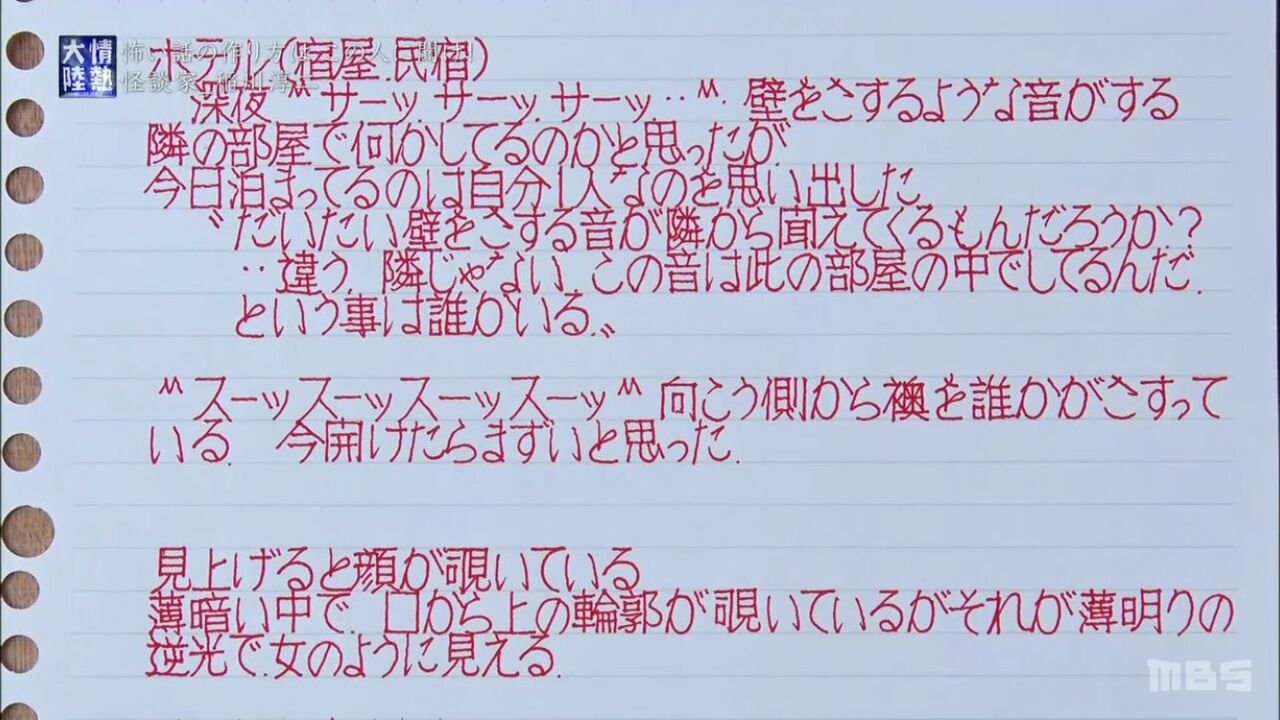 情熱大陸
怖い話の作り方はこの人に聞け!
怪談家 稲川淳二
ホテル(宿屋.民宿)
深夜〝サーッ.サーッ.サーッ‥〞.壁をさするような音がする
隣の部屋で何かしてるのかと思ったが.
今日泊まってるのは自分1人なのを思い出した.
〝だいたい壁をさする音が隣から聞えてくるもんだろうか?
‥違う.隣じゃない.この音は此の部屋の中でしてるんだ.
という事は誰かいる.〟
〝スーッスーッスーッスーッ〞向こう側から襖を誰かがさすって
いる. 今開けたらまずいと思った.
見上げると顔が覗いている
薄暗い中で.口から上の輪郭が覗いているがそれが薄明りの
逆光で.女のように見える.
MBS